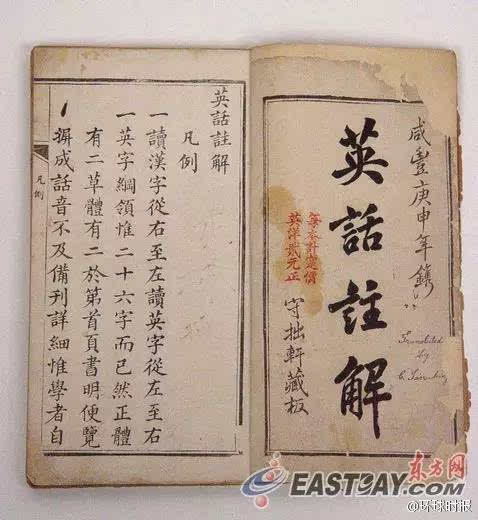 咸豐庚申年鐫
英話註解
每本計定價
英洋貳元正
守拙軒藏板
Translated
by
英話註解
凡例
一讀漢字從右至左讀英字從左至右
一英字綱領惟二十六字而已然正體
有二草體有二於第首頁書明便覽
一摒成話音不及備刊詳細惟學者自
凡例
东方网
EASTDAY.COM
@环球时报